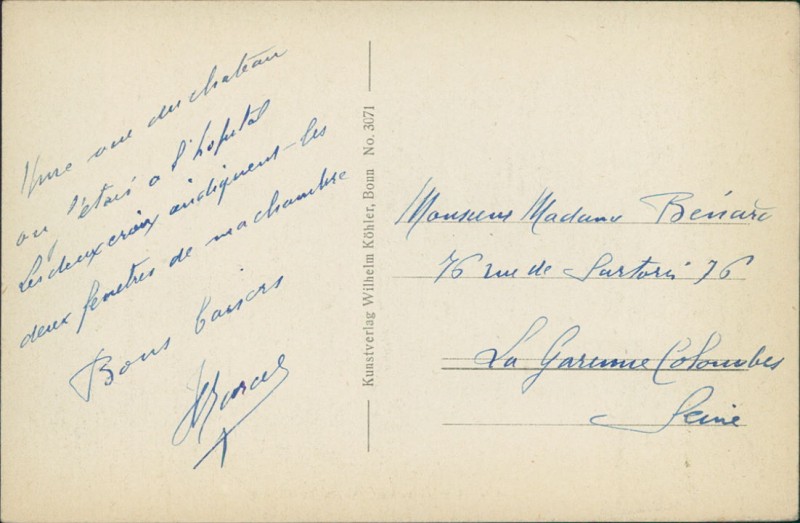 Une vue du chateau
ou j'étais a l'hopital
Les deux croix indiquent les
deux fenetres de ma chambre
Bons baisers
Kunstverlag Wilhelm Köhler, Bonn No. 3071
Monsieur Madame Bénard
76 rue de Sartoris 76
La Garenne Colombes
Seine